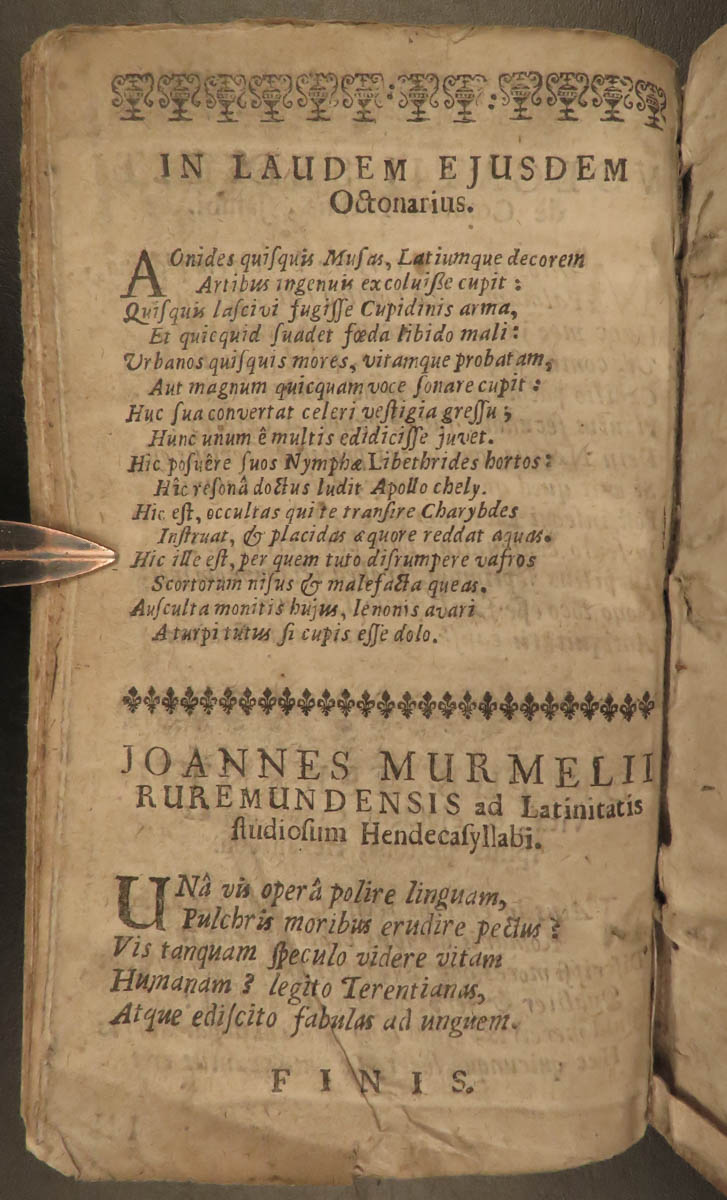 IN LAUDEM EJUSDEM
Octonarius.
AOnides quiſquis Muſas, Latiumque decorem
Artibus ingenuis excoluiſſe cupit :
Quiſquis laſcivi fugiſſe Cupidinis arma,
Et quicquid ſuadet fœda libido mali :
Urbanos quiſquis mores, vitamque probatam,
Aut magnum quicquam voce ſonare cupit :
Huc ſua convertat celeri veſtigia greſſu ;
Hunc unum ê multis edidiciſſe juvet.
Hic poſuêre ſuos Nymphæ Libethrides hortos :
Hîc reſonâ doctus ludit Apollo chely.
Hic eſt, occultas qui te tranſire Charybdes
Inſtruat, & placidas æquore reddat aquas.
Hic ille eſt, per quem tuto diſrumpere vafros
Scortorum niſus & malefacta queas.
Auſculta monitis hujus, lenonis avari
A turpi tutus ſi cupis eſſe dolo.
JOANNES MURMELII
RUREMUNDENSIS ad Latinitatis
ſtudioſum Hendecaſyllabi.
UNâ vis operâ polire linguam,
Pulchris moribus erudire pectus ?
Vis tanquam ſpeculo videre vitam
Humanam ? legito Terentianas,
Atque ediſcito fabulas ad unguem.
FINIS.